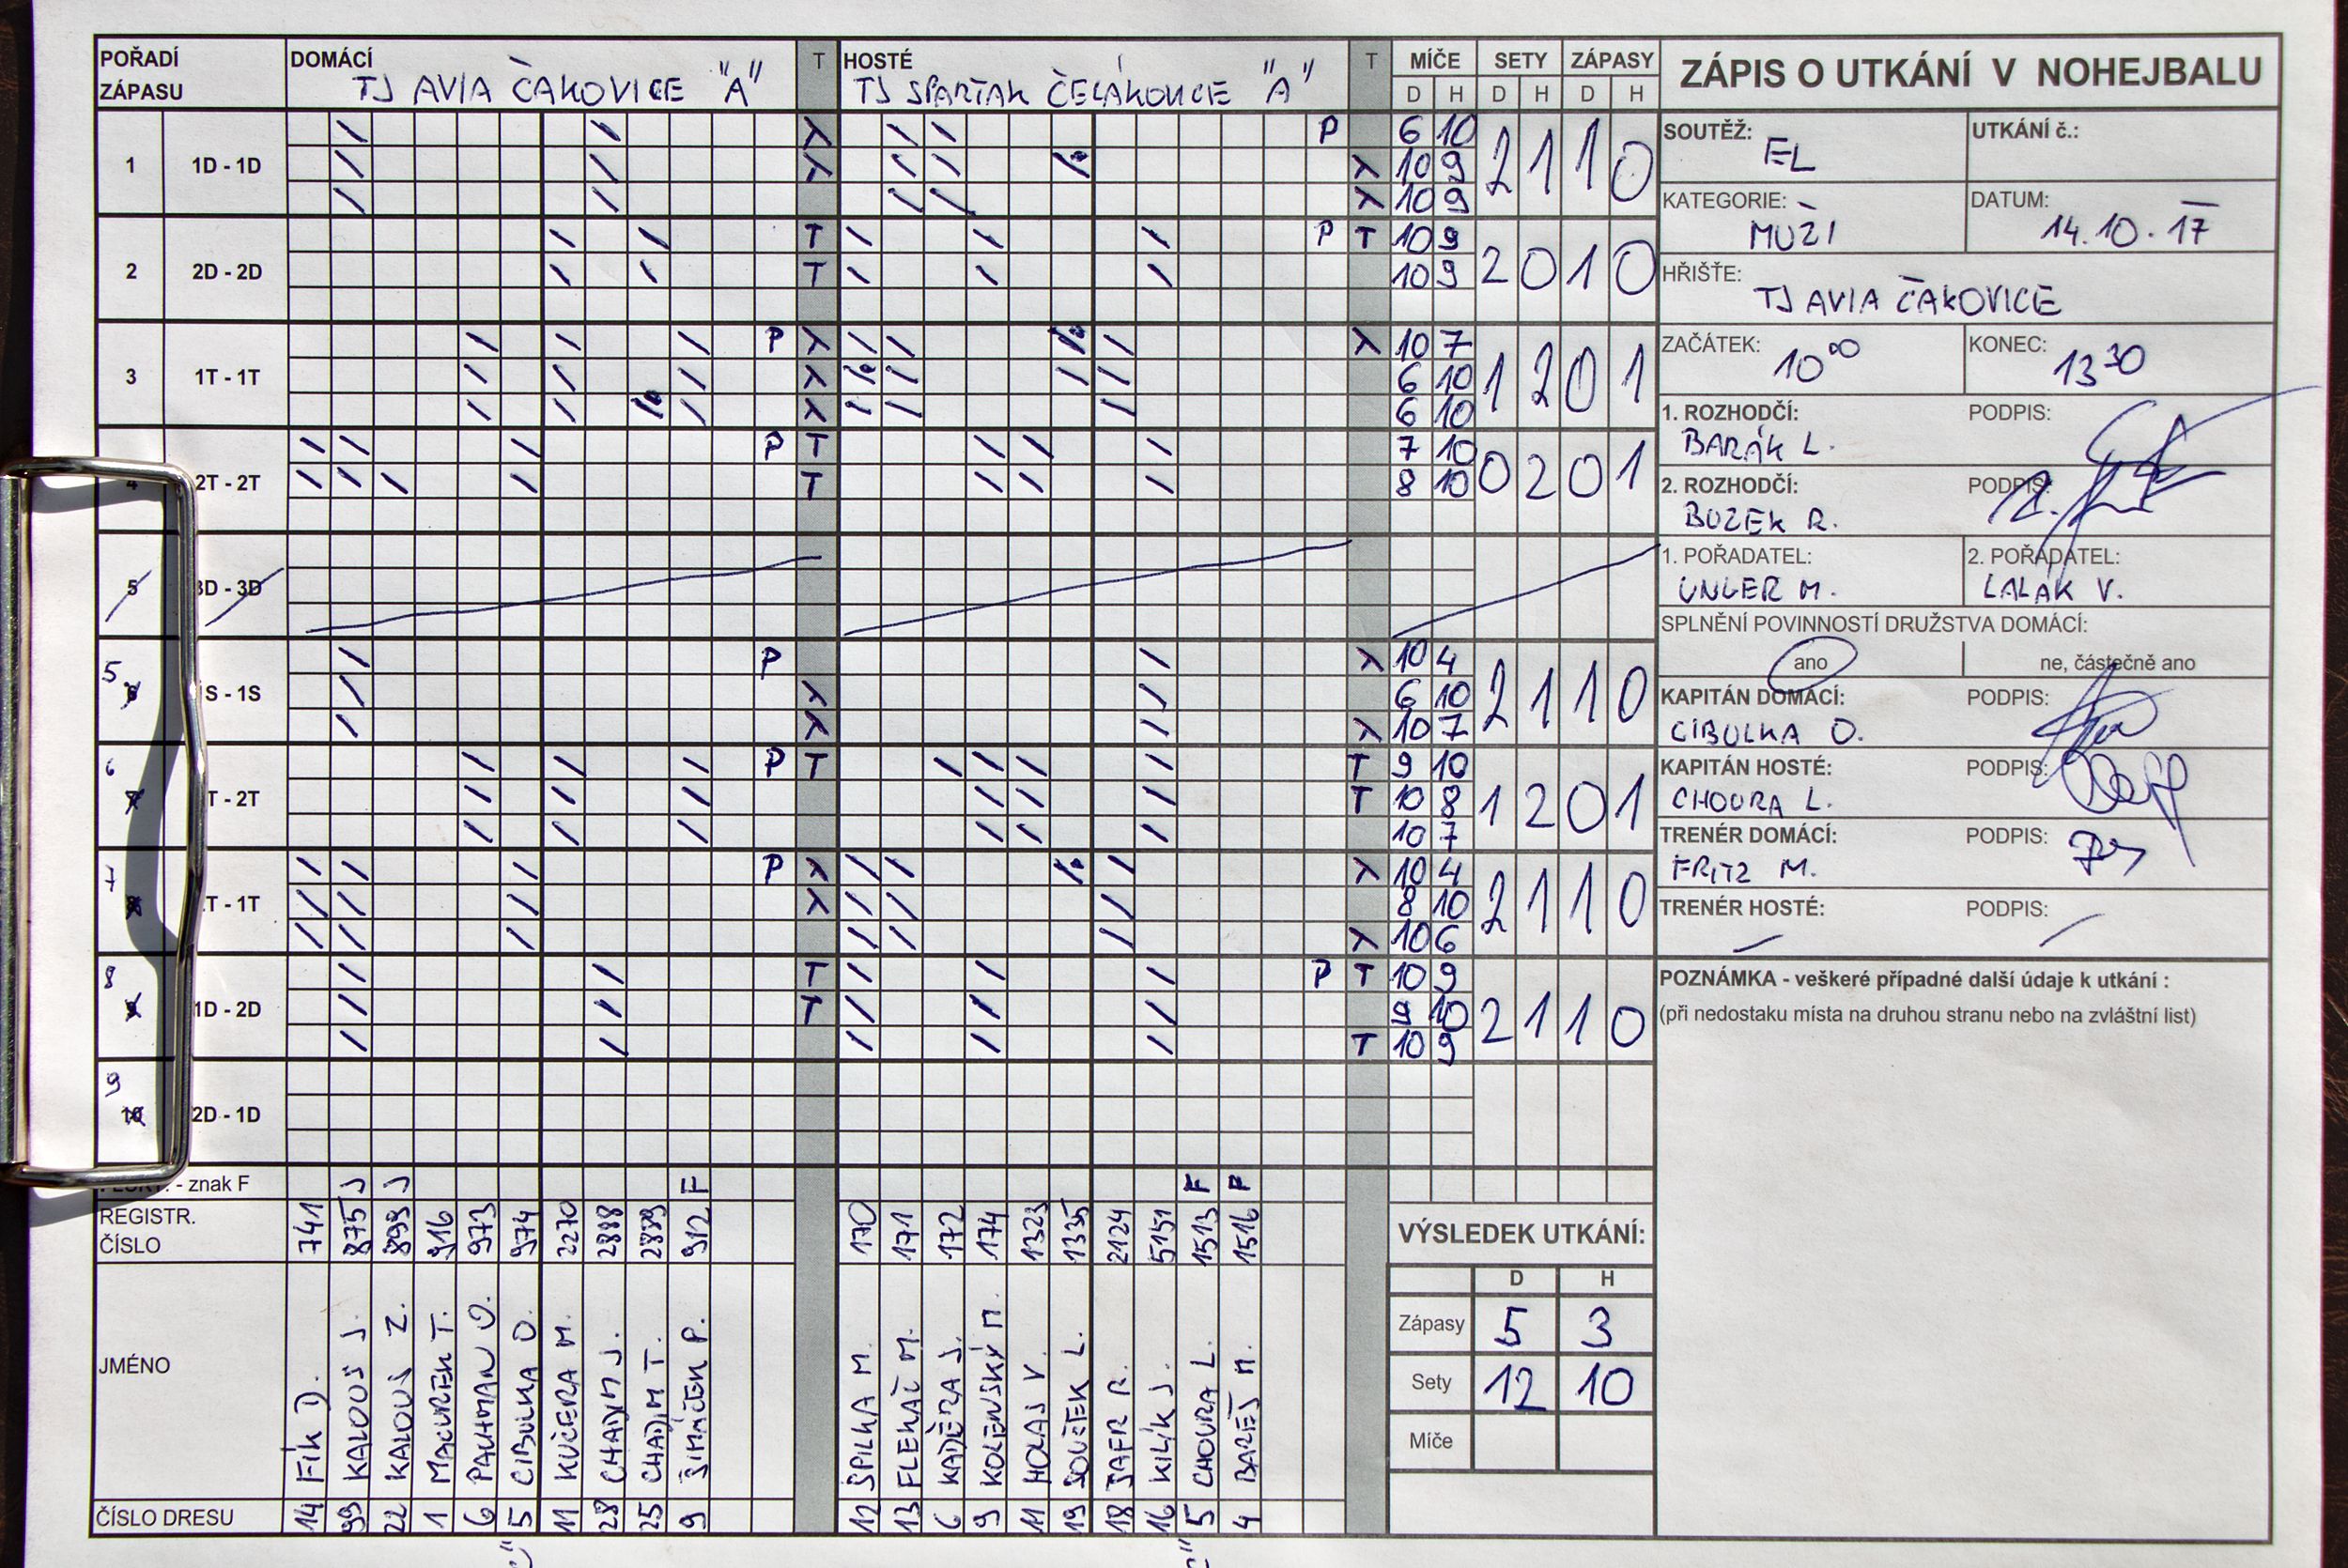 POŘADÍ ZÁPASU DOMÁCÍ T HOSTÉ T MÍČE SETY ZÁPASY
TJ AVIA ČAKOVICE "A" TJ SPARTAK ČELÁKOVICE "A" D H D H D H
1 1D - 1D P 6 10 2 1 1 0
10 9
10 9
2 2D - 2D T P T 10 9 2 0 1 0
T 10 9
3 1T - 1T P 10 7 1 2 0 1
6 10
6 10
4 2T - 2T P T 7 10 0 2 0 1
T 8 10
5 3D - 3D
5 6 1S - 1S P 10 4 2 1 1 0
6 10
10 7
6 7 T - 2T P T T 9 10 1 2 0 1
T 10 8
10 7
7 8 T - 1T P 10 4 2 1 1 0
8 10
10 6
8 9 1D - 2D T P T 10 9 2 1 1 0
T 9 10
T 10 9
9 10 2D - 1D
- znak F J J F F F
REGISTR. ČÍSLO 741 875 899 916 973 974 2270 2888 2889 912 170 171 172 174 1323 1335 2124 5151 1513 1516
JMÉNO FIK D. KALOUS J. KALOUS Z. MACUREK T. PACHMAN O. CIBULKA O. KUČERA M. CHADIM J. CHADIM T. ŠIMÁČEK P. ŠPILKA M. FLEKAČ M. KADĚRA J. KOLENSKÝ M. HOLAS V. SOUČEK L. ŠAFR R. KILÍK J. CHOURA L. BAREŠ M.
ČÍSLO DRESU 14 99 22 1 6 5 11 28 25 9 12 13 6 9 11 19 18 16 5 4
VÝSLEDEK UTKÁNÍ:
D H
Zápasy 5 3
Sety 12 10
Míče
ZÁPIS O UTKÁNÍ V NOHEJBALU
SOUTĚŽ: EL UTKÁNÍ č.:
KATEGORIE: MUŽI DATUM: 14.10.17
HŘIŠTĚ: TJ AVIA ČAKOVICE
ZAČÁTEK: 10 00 KONEC: 13 30
1. ROZHODČÍ: PODPIS:
BARÁK L.
2. ROZHODČÍ: PODPIS:
BUZEK R.
1. POŘADATEL: 2. POŘADATEL:
UNGER M. LALÁK V.
SPLNĚNÍ POVINNOSTÍ DRUŽSTVA DOMÁCÍ:
ano ne, částečně ano
KAPITÁN DOMÁCÍ: PODPIS:
CIBULKA O.
KAPITÁN HOSTÉ: PODPIS:
CHOURA L.
TRENÉR DOMÁCÍ: PODPIS:
FRITZ M.
TRENÉR HOSTÉ: PODPIS:
POZNÁMKA - veškeré případné další údaje k utkání :
(při nedostaku místa na druhou stranu nebo na zvláštní list)